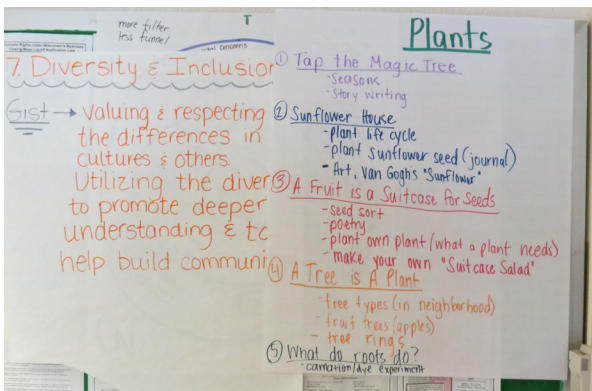 more filter
less funnel
T
Concerns
7. Diversity & Inclusion
Gist → Valuing & respecting
the differences in
cultures & others.
Utilizing the diver
to promote deeper
understanding & to
help build communi
Plants
① Tap the Magic Tree
- Seasons
- Story writing
② Sunflower House
- plant life cycle
- plant sunflower seed (journal)
- Art, Van Goghs "Sunflower"
③ A Fruit is a Suitcase for Seeds
- seed sort
- poetry
- plant own plant (what a plant needs)
- make your own "Suitcase Salad"
④ A Tree is A Plant
- tree types (in neighborhood)
- fruit trees (apples)
- tree rings
⑤ What do roots do?
- carnation/dye experiment